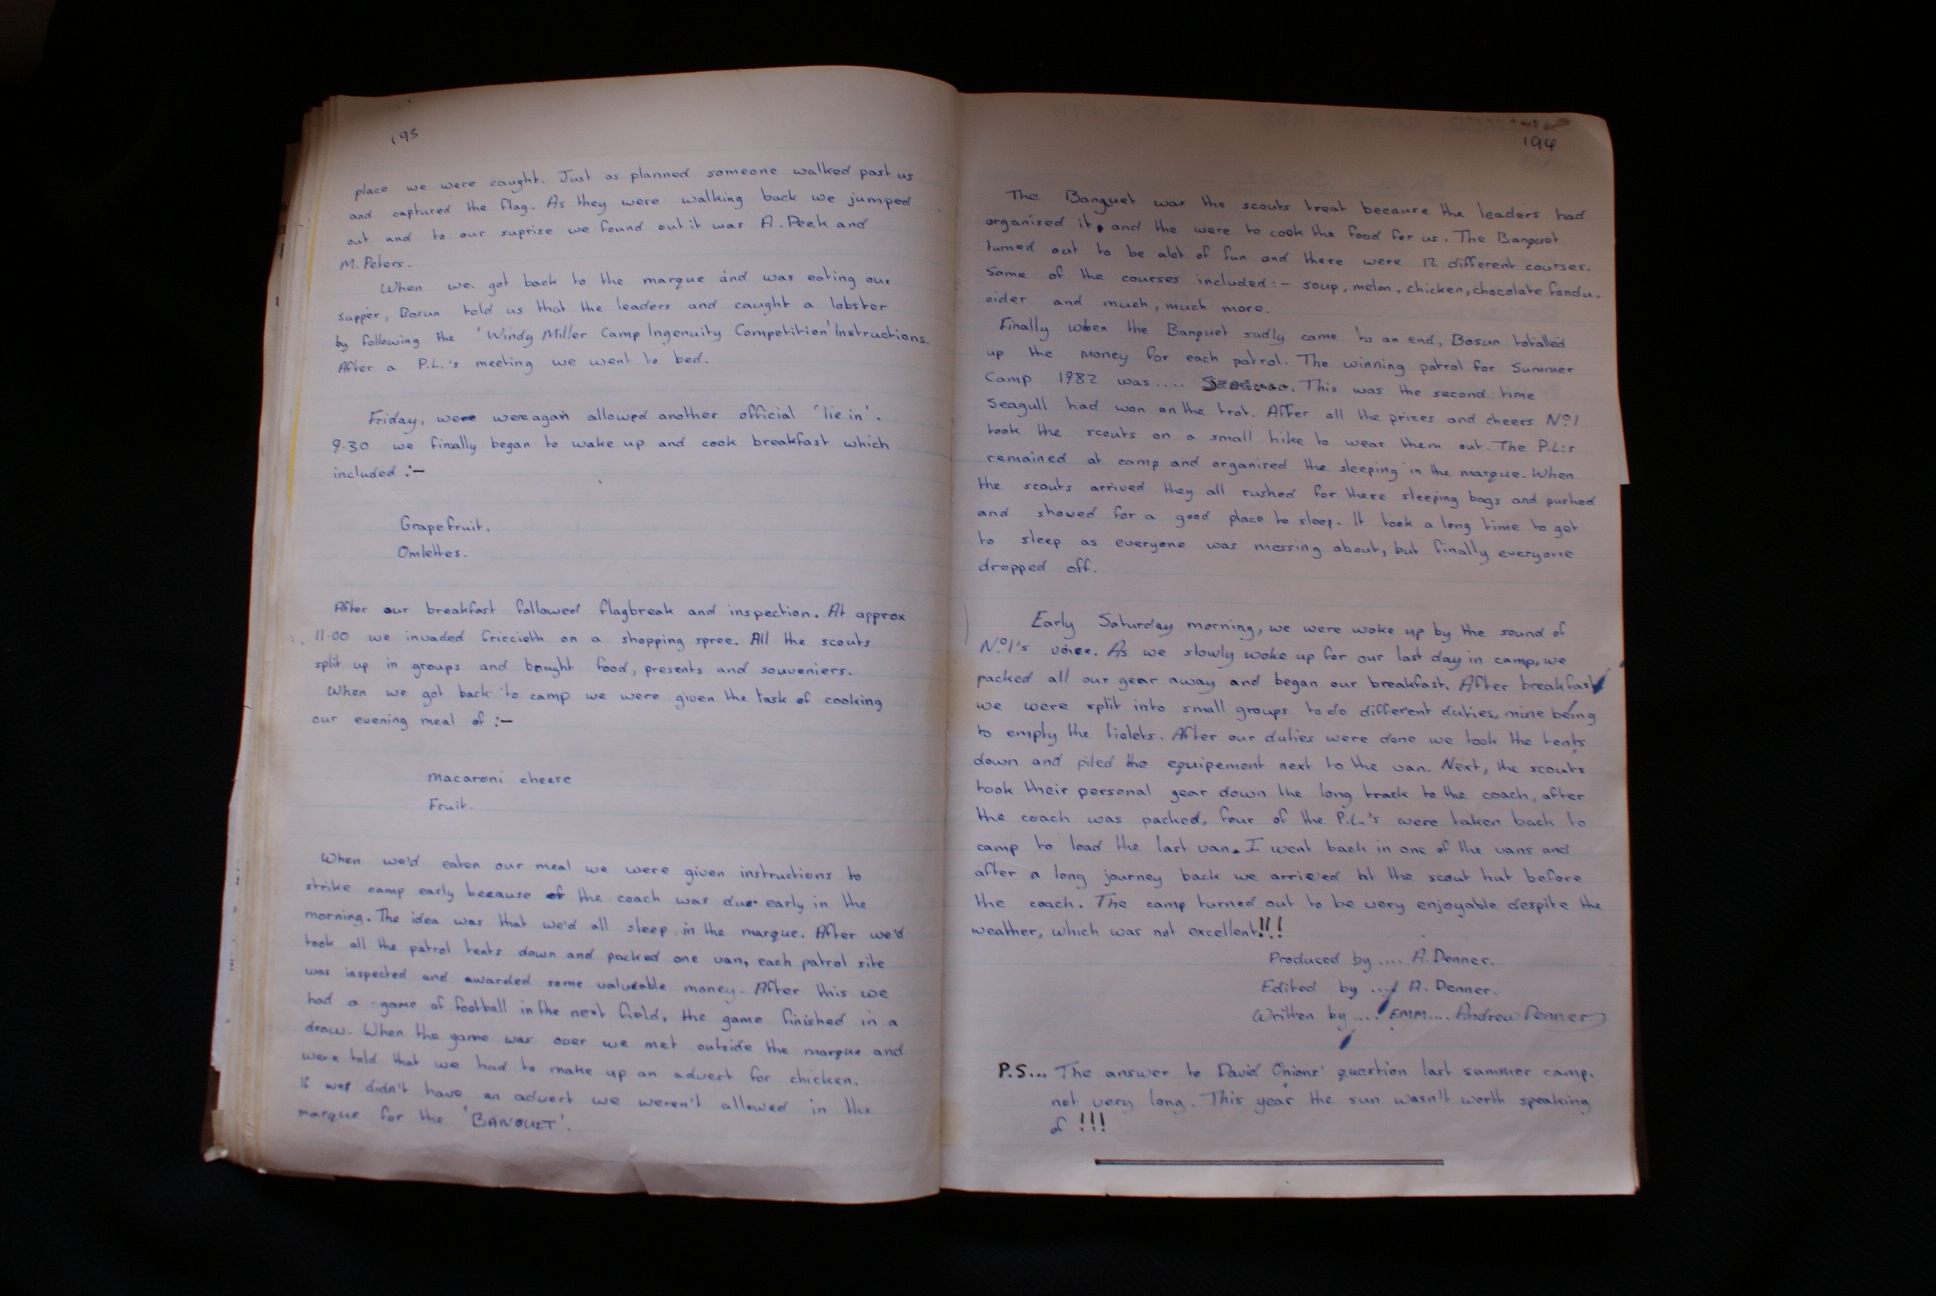 195
place we were caught. Just as planned someone walked past us
and captured the flag. As they were walking back we jumped
out and to our suprise we found out it was A. Peek and
M. Peters.
When we got back to the marque and was eating our
supper, Bosun told us that the leaders and caught a lobster
by following the 'Windy Miller Camp Ingenuity Competition' Instructions.
After a P.L.'s meeting we went to bed.
Friday, were were again allowed another official 'lie in'.
9.30 we finally began to wake up and cook breakfast which
included :-
Grapefruit.
Omlettes.
After our breakfast followed flagbreak and inspection. At approx
11.00 we invaded Criccieth on a shopping spree. All the scouts
split up in groups and bought food, presents and souveniers.
When we got back to camp we were given the task of cooking
our evening meal of :-
Macaroni cheese
Fruit.
When we'd eaten our meal we were given instructions to
strike camp early because of the coach was due early in the
morning. The idea was that we'd all sleep in the marque. After we'd
took all the patrol tents down and packed one van, each patrol site
was inspected and awarded some valueable money. After this we
had a game of football in the next field, the game finished in a
draw. When the game was over we met outside the marque and
were told that we had to make up an advert for chicken.
If we didn't have an advert we weren't allowed in the
marque for the 'BANQUET'.
194
The Banquet was the scouts treat because the leaders had
organised it, and the were to cook the food for us. The Banquet
turned out to be alot of fun and there were 12 different courses.
Some of the courses included :- soup, melon, chicken, chocolate fondu,
cider and much, much more.
Finally when the Banquet sadly came to an end, Bosun totalled
up the money for each patrol. The winning patrol for Summer
Camp 1982 was .... This was the second time
Seagull had won on the trot. After all the prizes and cheers No1
took the scouts on a small hike to wear them out. The P.L.'s
remained at camp and organised the sleeping in the marque. When
the scouts arrived they all rushed for there sleeping bags and pushed
and shoved for a good place to sleep. It took a long time to get
to sleep as everyone was messing about, but finally everyone
dropped off.
Early Saturday morning, we were woke up by the sound of
No1's voice. As we slowly woke up for our last day in camp, we
packed all our gear away and began our breakfast. After breakfast
we were split into small groups to do different duties, mine being
to empty the tiolets. After our duties were done we took the tents
down and piled the equipement next to the van. Next, the scouts
took their personal gear down the long track to the coach, after
the coach was packed, four of the P.L.'s were taken back to
camp to load the last van. I went back in one of the vans and
after a long journey back we arrived at the scout hut before
the coach. The camp turned out to be very enjoyable despite the
weather, which was not excellent!!!
Produced by .... A. Denner.
Edited by .... A. Denner.
Written by .... EMM.... Andrew Denner
P.S... The answer to David Onions' question last summer camp.
not very long. This year the sun wasn't worth speaking
of !!!